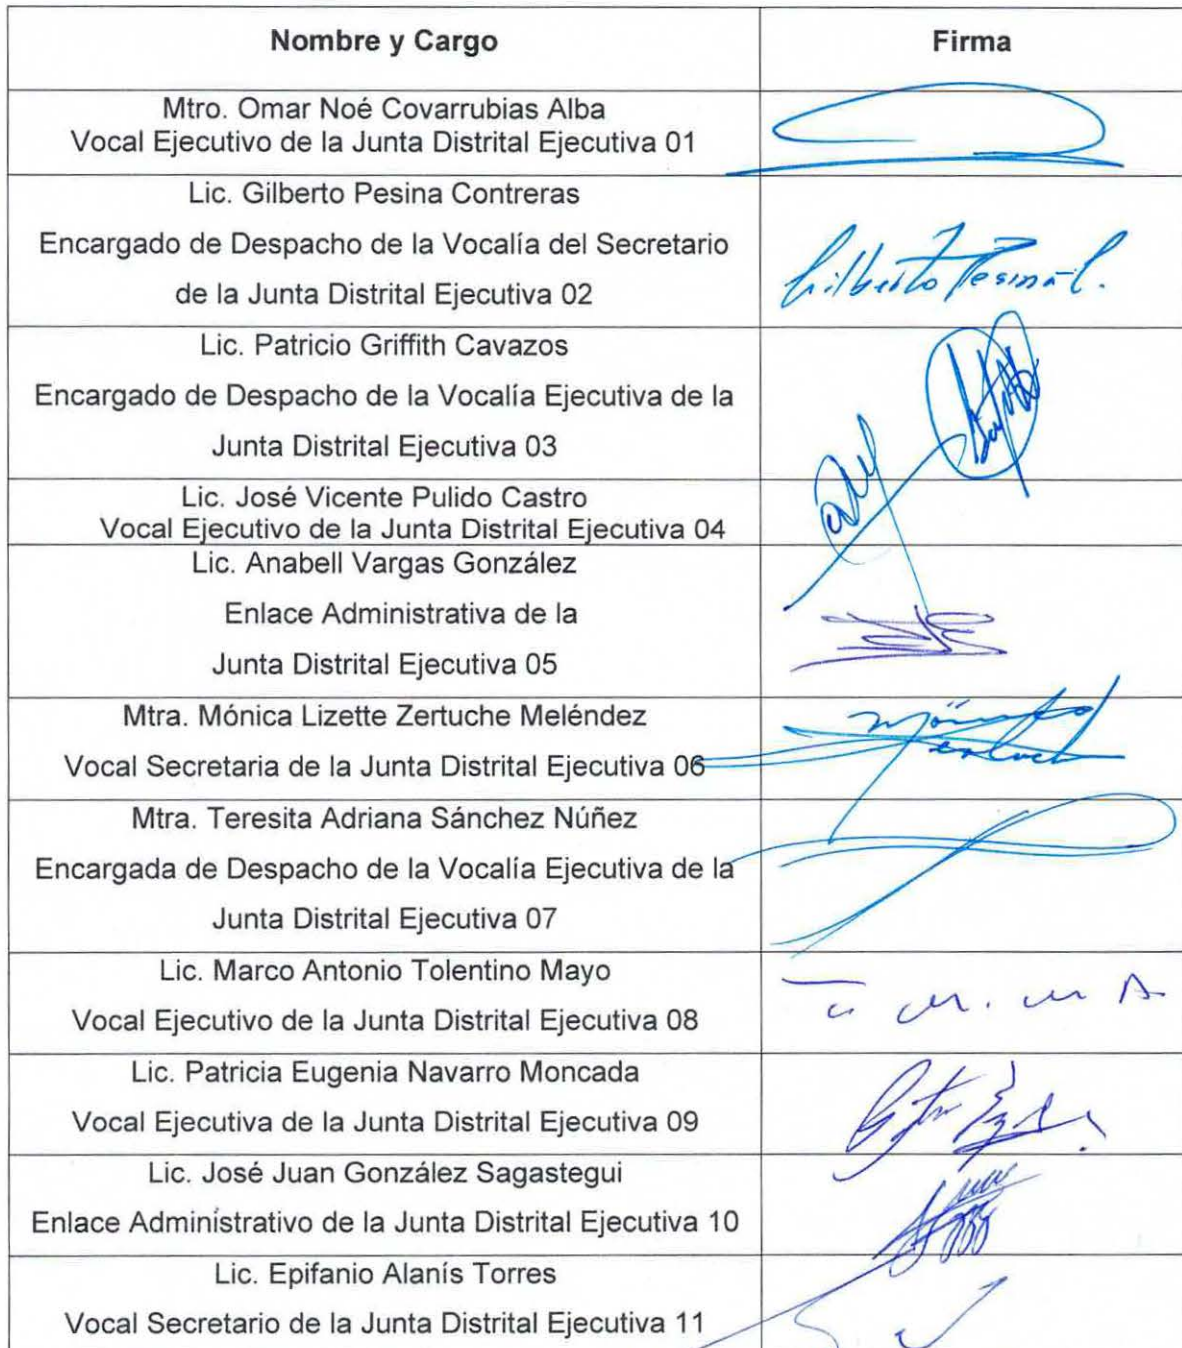 Nombre y Cargo
Firma
Mtro. Omar Noé Covarrubias Alba
Vocal Ejecutivo de la Junta Distrital Ejecutiva 01
Lic. Gilberto Pesina Contreras
Encargado de Despacho de la Vocalía del Secretario
de la Junta Distrital Ejecutiva 02
Gilberto Pesina C.
Lic. Patricio Griffith Cavazos
Encargado de Despacho de la Vocalía Ejecutiva de la
Junta Distrital Ejecutiva 03
Lic. José Vicente Pulido Castro
Vocal Ejecutivo de la Junta Distrital Ejecutiva 04
Lic. Anabell Vargas González
Enlace Administrativa de la
Junta Distrital Ejecutiva 05
Mtra. Mónica Lizette Zertuche Meléndez
Vocal Secretaria de la Junta Distrital Ejecutiva 06
Mtra. Teresita Adriana Sánchez Núñez
Encargada de Despacho de la Vocalía Ejecutiva de la
Junta Distrital Ejecutiva 07
Lic. Marco Antonio Tolentino Mayo
Vocal Ejecutivo de la Junta Distrital Ejecutiva 08
Lic. Patricia Eugenia Navarro Moncada
Vocal Ejecutiva de la Junta Distrital Ejecutiva 09
Lic. José Juan González Sagastegui
Enlace Administrativo de la Junta Distrital Ejecutiva 10
Lic. Epifanio Alanís Torres
Vocal Secretario de la Junta Distrital Ejecutiva 11